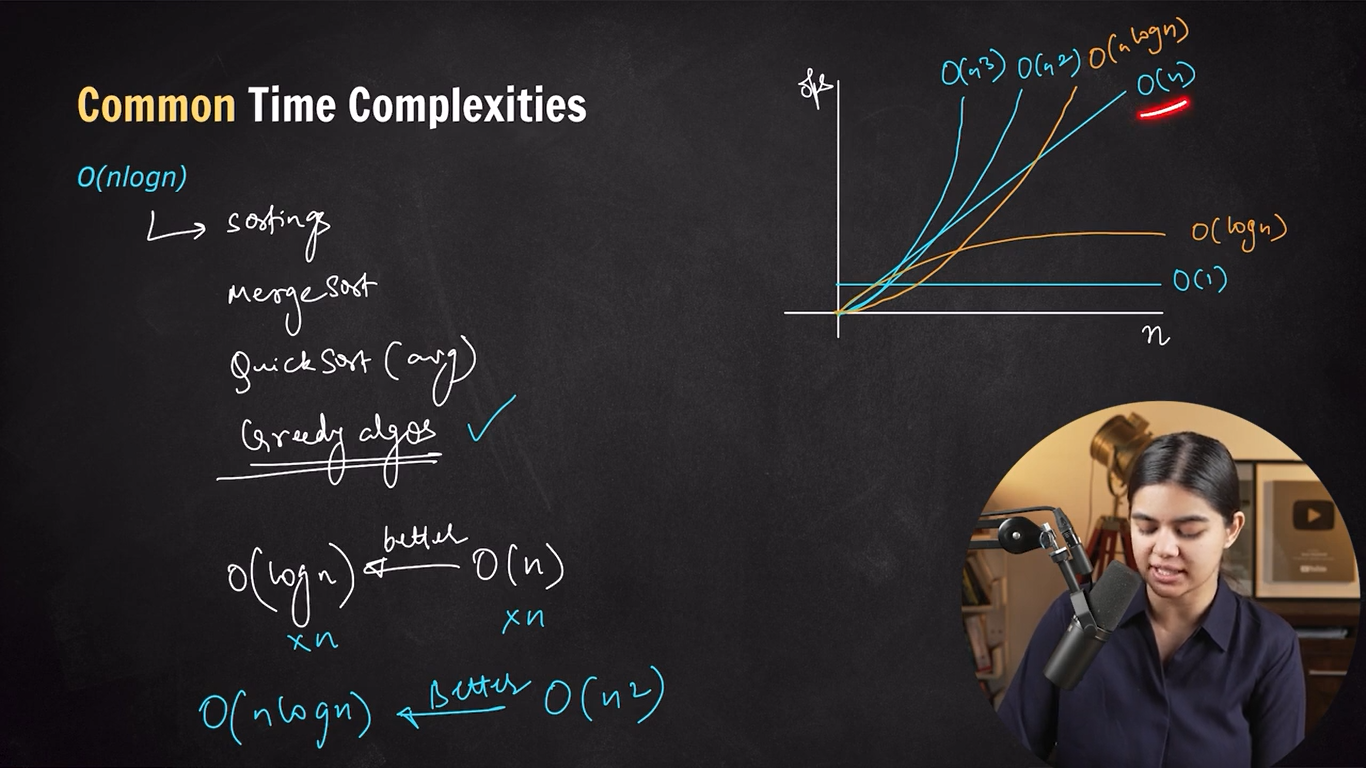 Common Time Complexities
O(nlogn)
sortings
Merge Sort
Quick Sort (avg)
Greedy algos
O(logn) better O(n)
xn xn
O(nlogn) Better O(n2)
ops
O(n3) O(n2) O(nlogn)
O(n)
O(logn)
O(1)
n